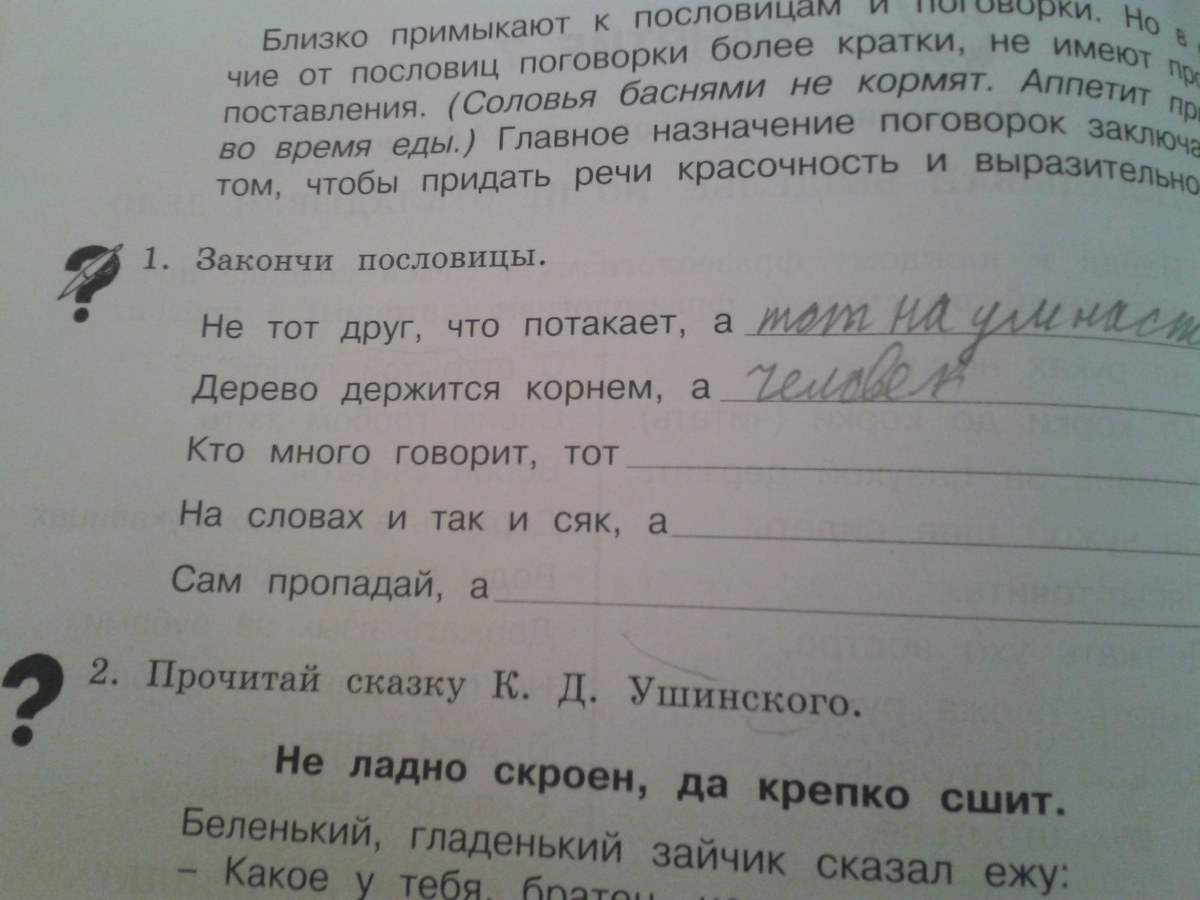 Близко примыкают к пословицам и поговорки. Но в
чие от пословиц поговорки более кратки, не имеют
поставления. (Соловья баснями не кормят. Аппетит
во время еды.) Главное назначение поговорок заключа
том, чтобы придать речи красочность и выразительно
1. Закончи пословицы.
Не тот друг, что потакает, а тот на ум наст
Дерево держится корнем, а человек
Кто много говорит, тот
На словах и так и сяк, а
Сам пропадай, а
2. Прочитай сказку К. Д. Ушинского.
Не ладно скроен, да крепко сшит.
Беленький, гладенький зайчик сказал ежу:
– Какое у тебя, братец,